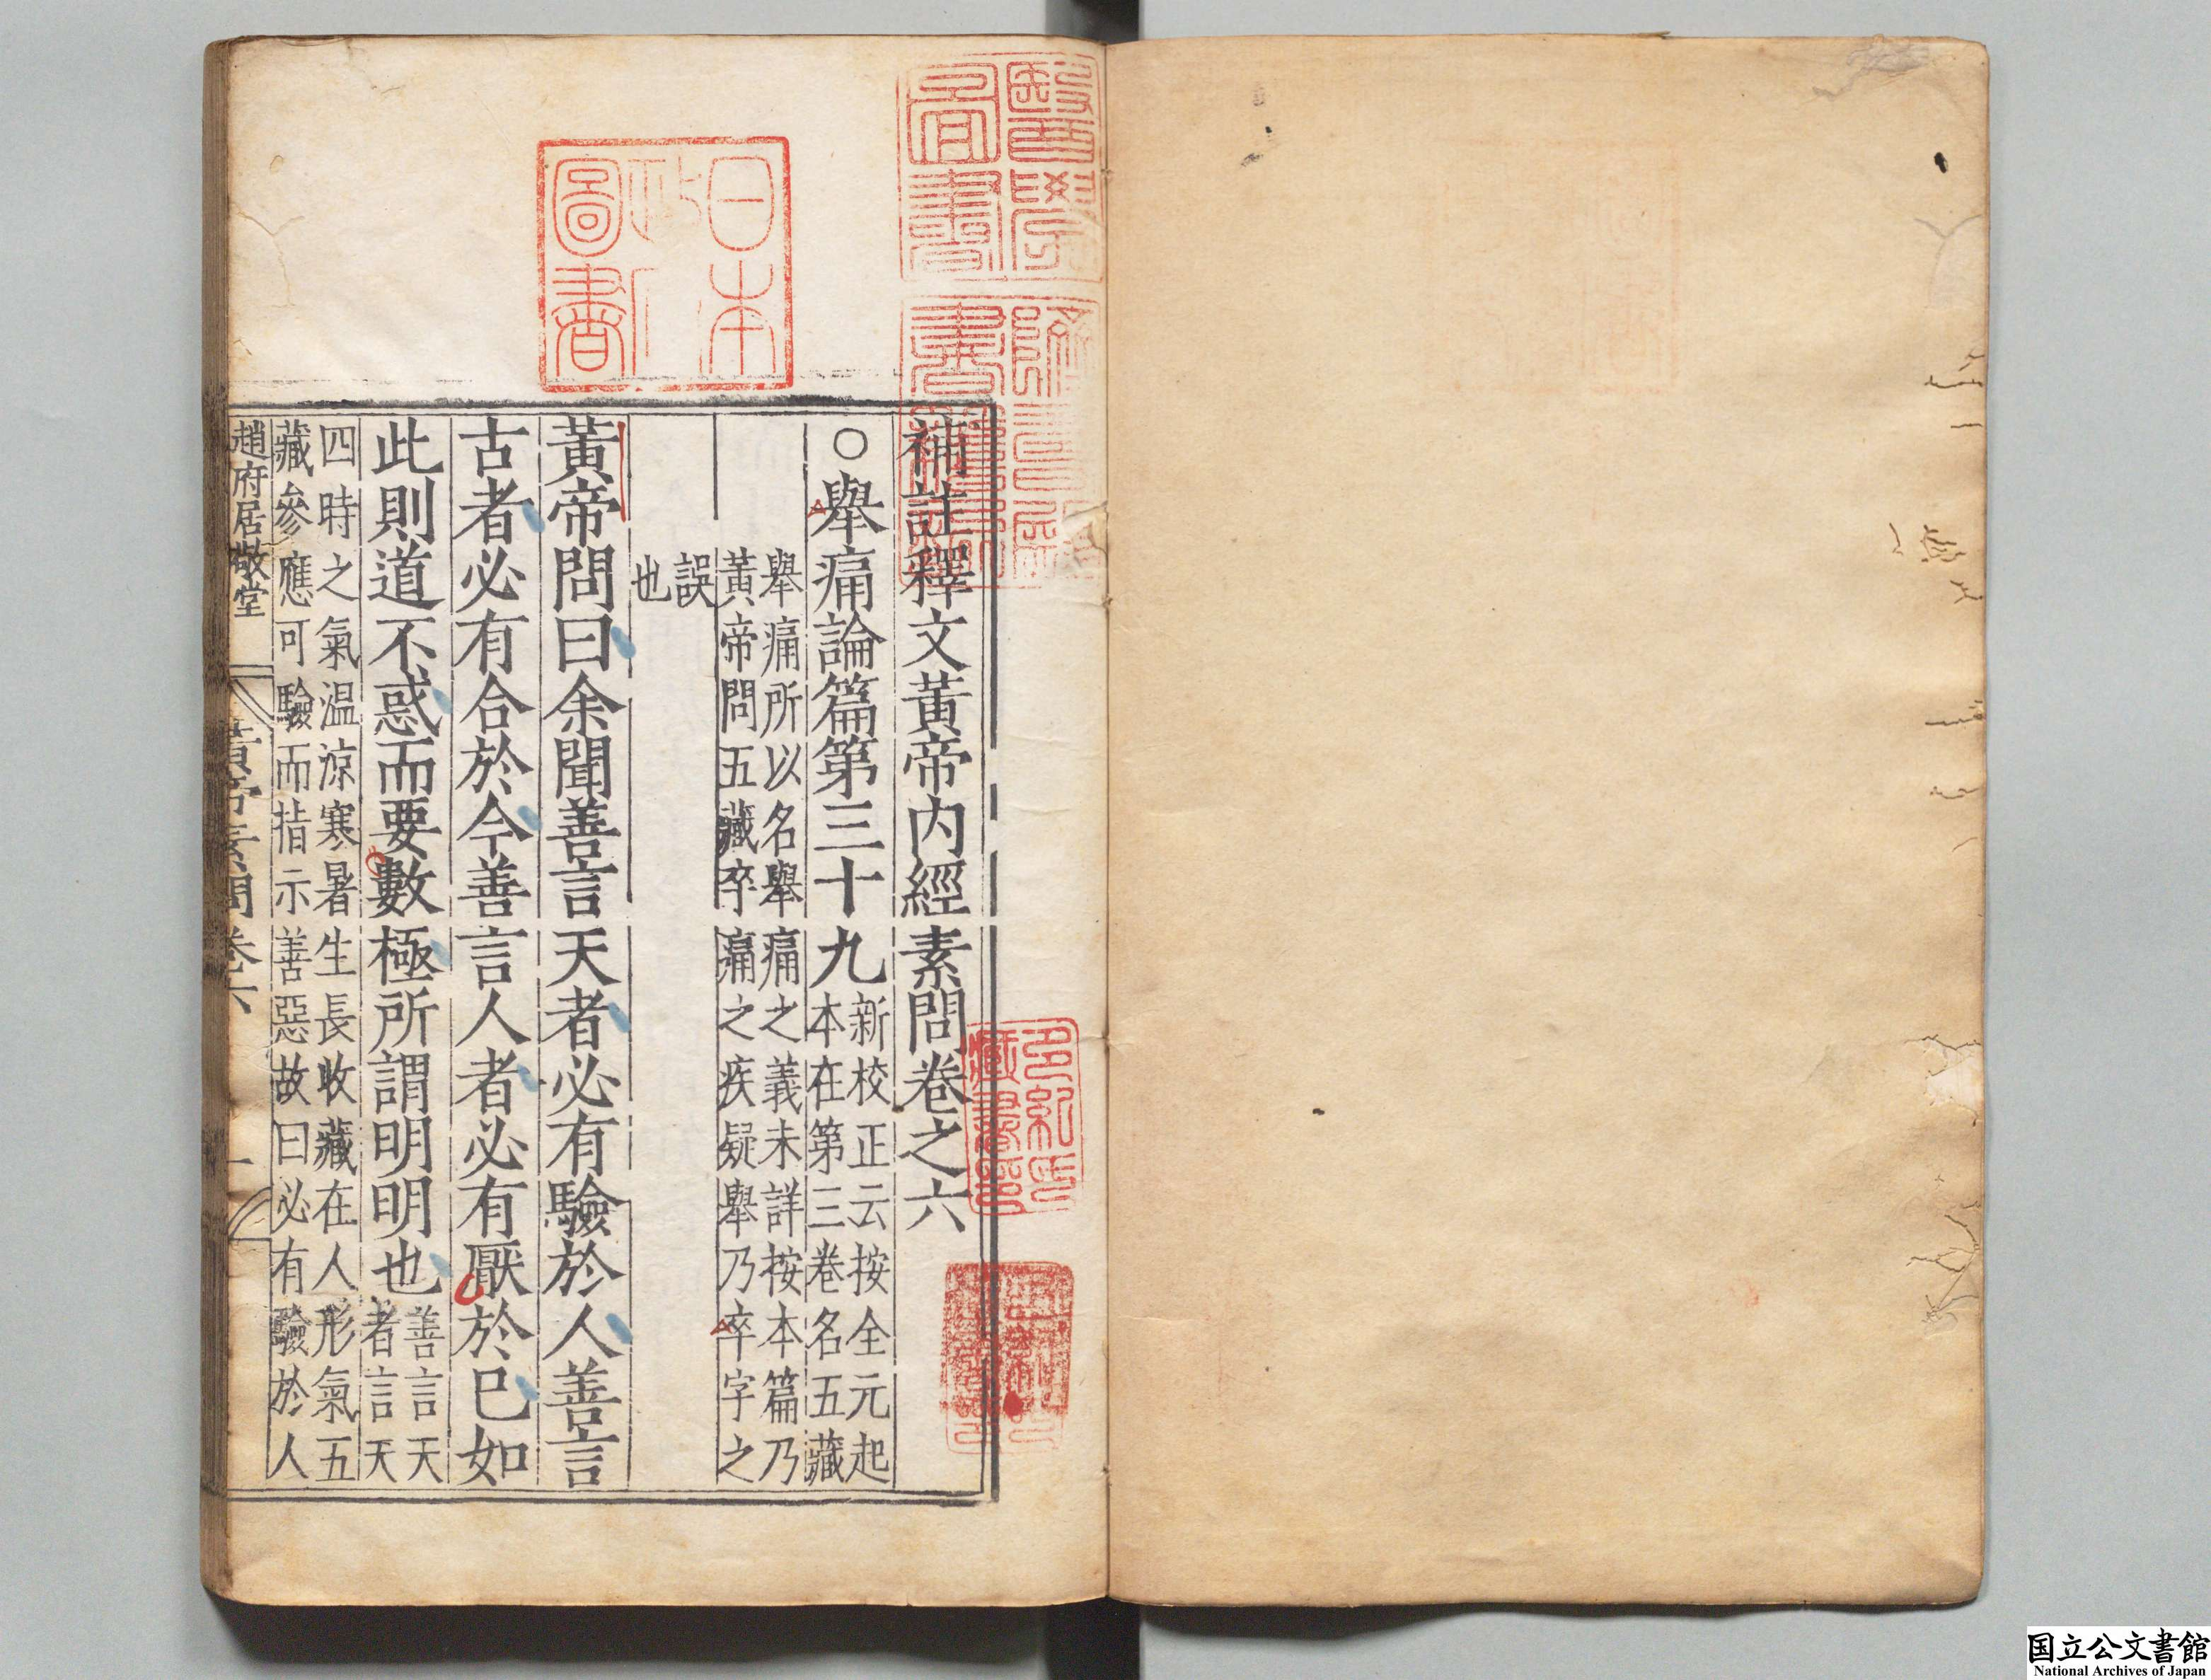 補註釋文黃帝内經素問卷之六
○舉痛論篇第三十九
新校正云按全元起
本在第三卷名五藏
舉痛所以名舉痛之義未詳按本篇乃
黃帝問五藏卒痛之疾疑舉乃卒字之
誤
也
黃帝問曰余聞善言天者必有驗於人善言
古者必有合於今善言人者必有厭於已如
此則道不惑而要數極所謂明明也
善言天
者言天
四時之氣温涼寒暑生長收藏在人形氣五
藏參應可驗而指示善惡故曰必有驗於人
趙府居敬堂
黃帝素問卷六
一
日本
政府
圖書
醫學
圖書
多紀氏
藏書印
国立公文書館
National Archives of Japan